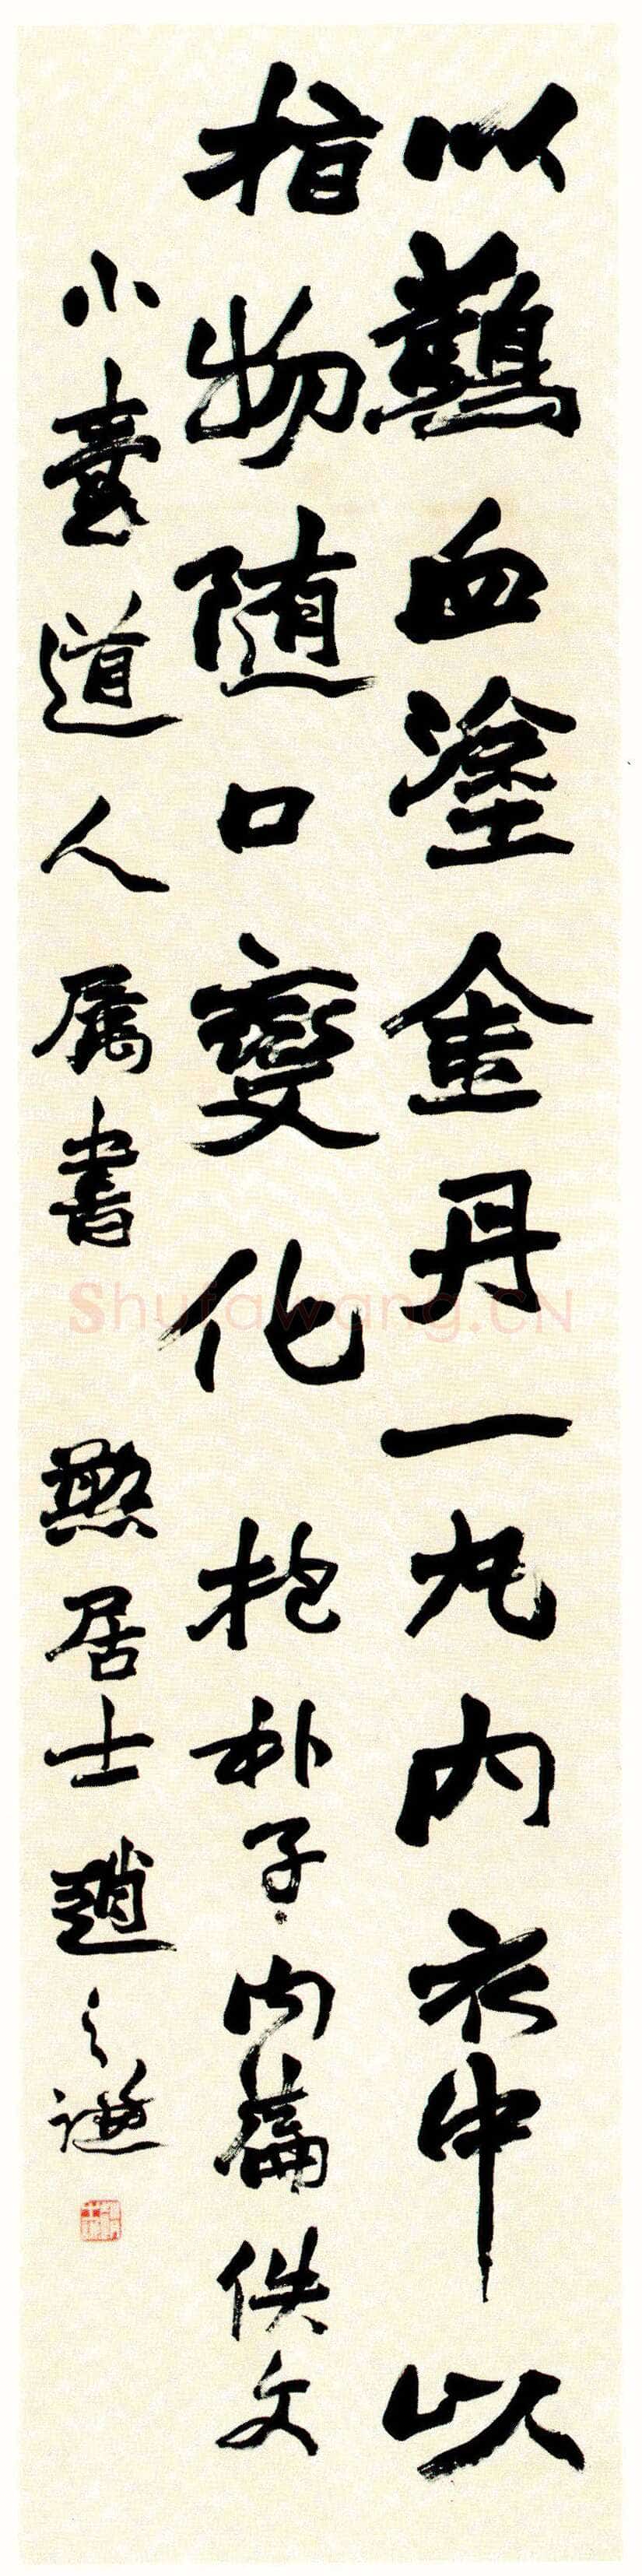 以鸛血塗金丹一丸內衣中以
指物随口變化 抱朴子內篇佚文
小道人属書 憨居士趙之謙
Shufawang.CN